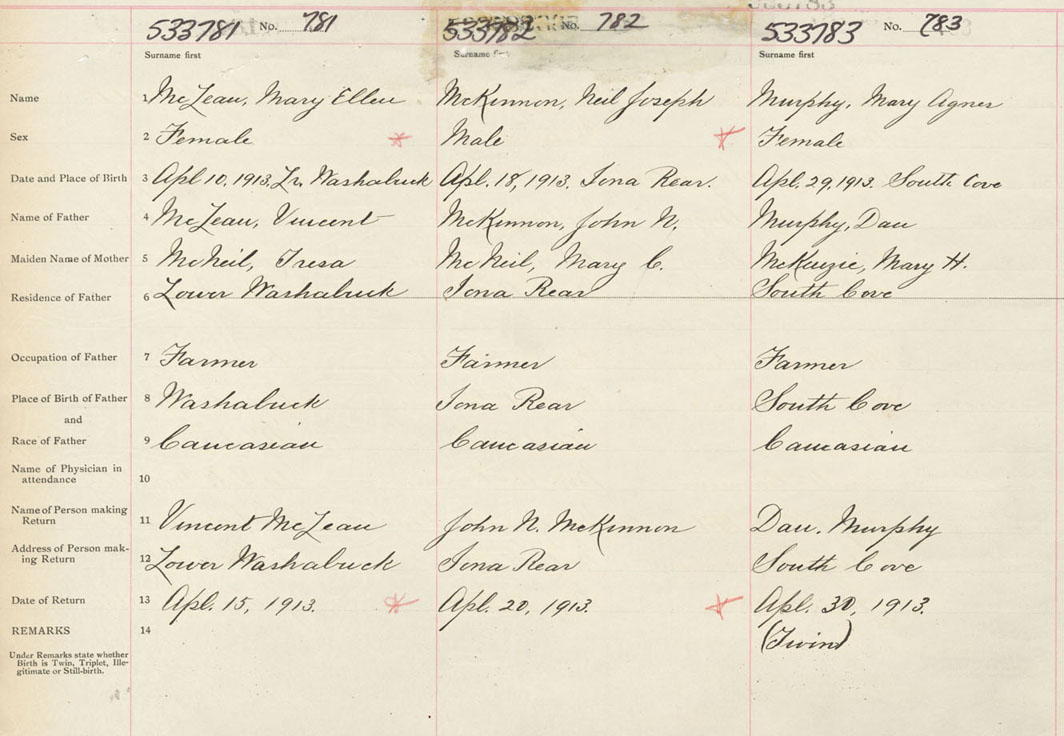 533781 No. 781 533782 No. 782 533783 No. 783
Surname first Surname first Surname first
Name 1 McLean, Mary Ellen McKinnon, Neil Joseph Murphy, Mary Agnes
Sex 2 Female Male Female
Date and Place of Birth 3 Apl 10, 1913, Lr. Washabuck Apl. 18, 1913. Iona Rear. Apl. 29, 1913. South Cove
Name of Father 4 McLean, Vincent McKinnon, John N. Murphy, Dan
Maiden Name of Mother 5 McNeil, Tresa McNeil, Mary C. McKenzie, Mary H.
Residence of Father 6 Lower Washabuck Iona Rear South Cove
Occupation of Father 7 Farmer Farmer Farmer
Place of Birth of Father 8 Washabuck Iona Rear South Cove
and
Race of Father 9 Caucasian Caucasian Caucasian
Name of Physician in
attendance 10
Name of Person making
Return 11 Vincent McLean John N. McKinnon Dan. Murphy
Address of Person mak-
ing Return 12 Lower Washabuck Iona Rear South Cove
Date of Return 13 Apl. 15, 1913. Apl. 20, 1913. Apl. 30, 1913.
REMARKS 14 (Twin)
Under Remarks state whether
Birth is Twin, Triplet, Ille-
gitimate or Still-birth.